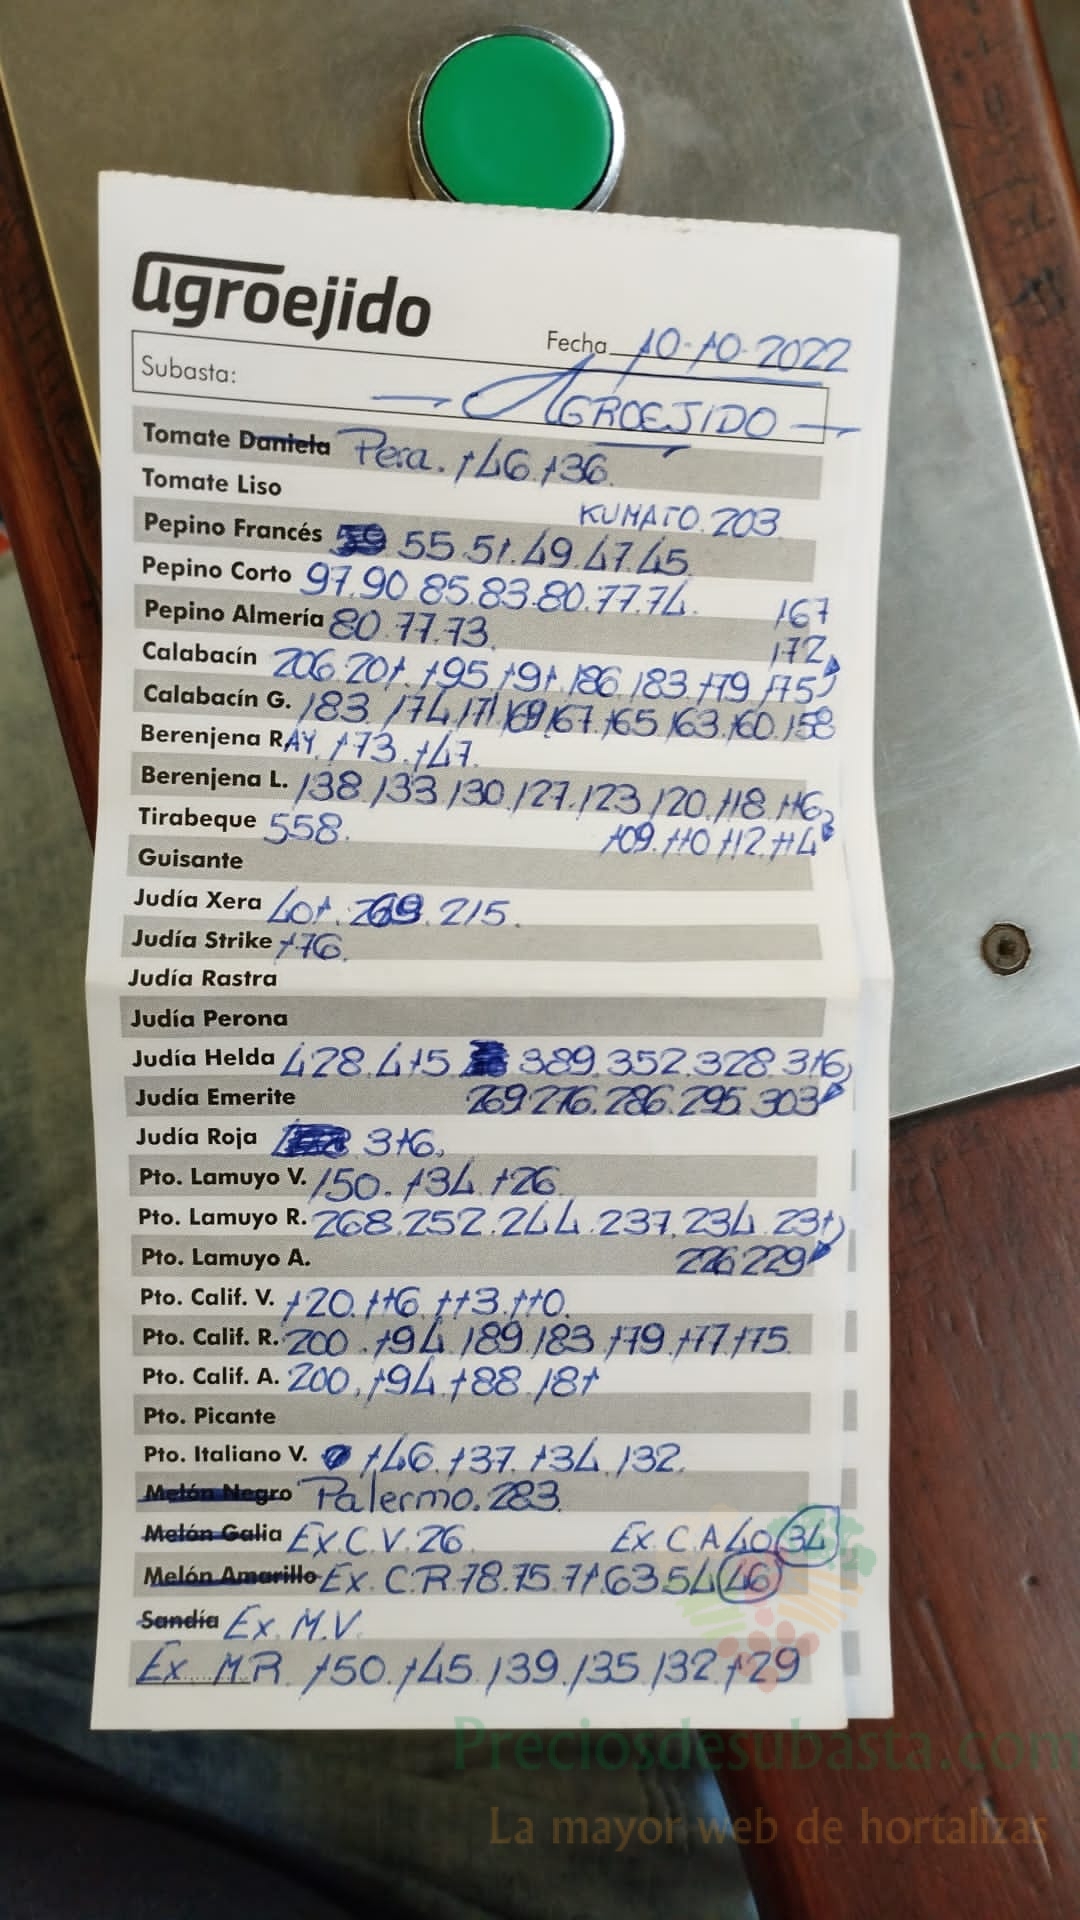 agroejido
Fecha 10-10-2022
Subasta: AGROEJIDO
Tomate Daniela Pera. 146.136.
Tomate Liso
KUMATO. 203
Pepino Francés 55.51.49.47.45
Pepino Corto 97.90.85.83.80.77.74.
167
Pepino Almería 80.77.73.
172
Calabacín 206.201.195.191.186.183.179.175
Calabacín G. 183.174.171.169.167.165.163.160.158
Berenjena RAY. 173.147.
Berenjena L. 138.133.130.127.123.120.118.116
Tirabeque 558.
109.110.112.114
Guisante
Judía Xera 401.269.215.
Judía Strike 176.
Judía Rastra
Judía Perona
Judía Helda 428.415 389.352.328.316
Judía Emerite 269.276.286.295.303
Judía Roja 316.
Pto. Lamuyo V. 150.134.126
Pto. Lamuyo R. 268.252.244.237.234.231
Pto. Lamuyo A. 226.229
Pto. Calif. V. 120.116.113.110.
Pto. Calif. R. 200.194.189.183.179.177.175
Pto. Calif. A. 200.194.188.181
Pto. Picante
Pto. Italiano V. 146.137.134.132.
Melón Negro Palermo. 283.
Melón Galia Ex.C.V. 26 Ex.C.A 40 34
Melón Amarillo Ex. C.R. 78.75.71 63.54 46
Sandía Ex. M.V.
Ex. M.R. 150.145.139.135.132.129
Preciosdesubasta.com
La mayor web de hortalizas